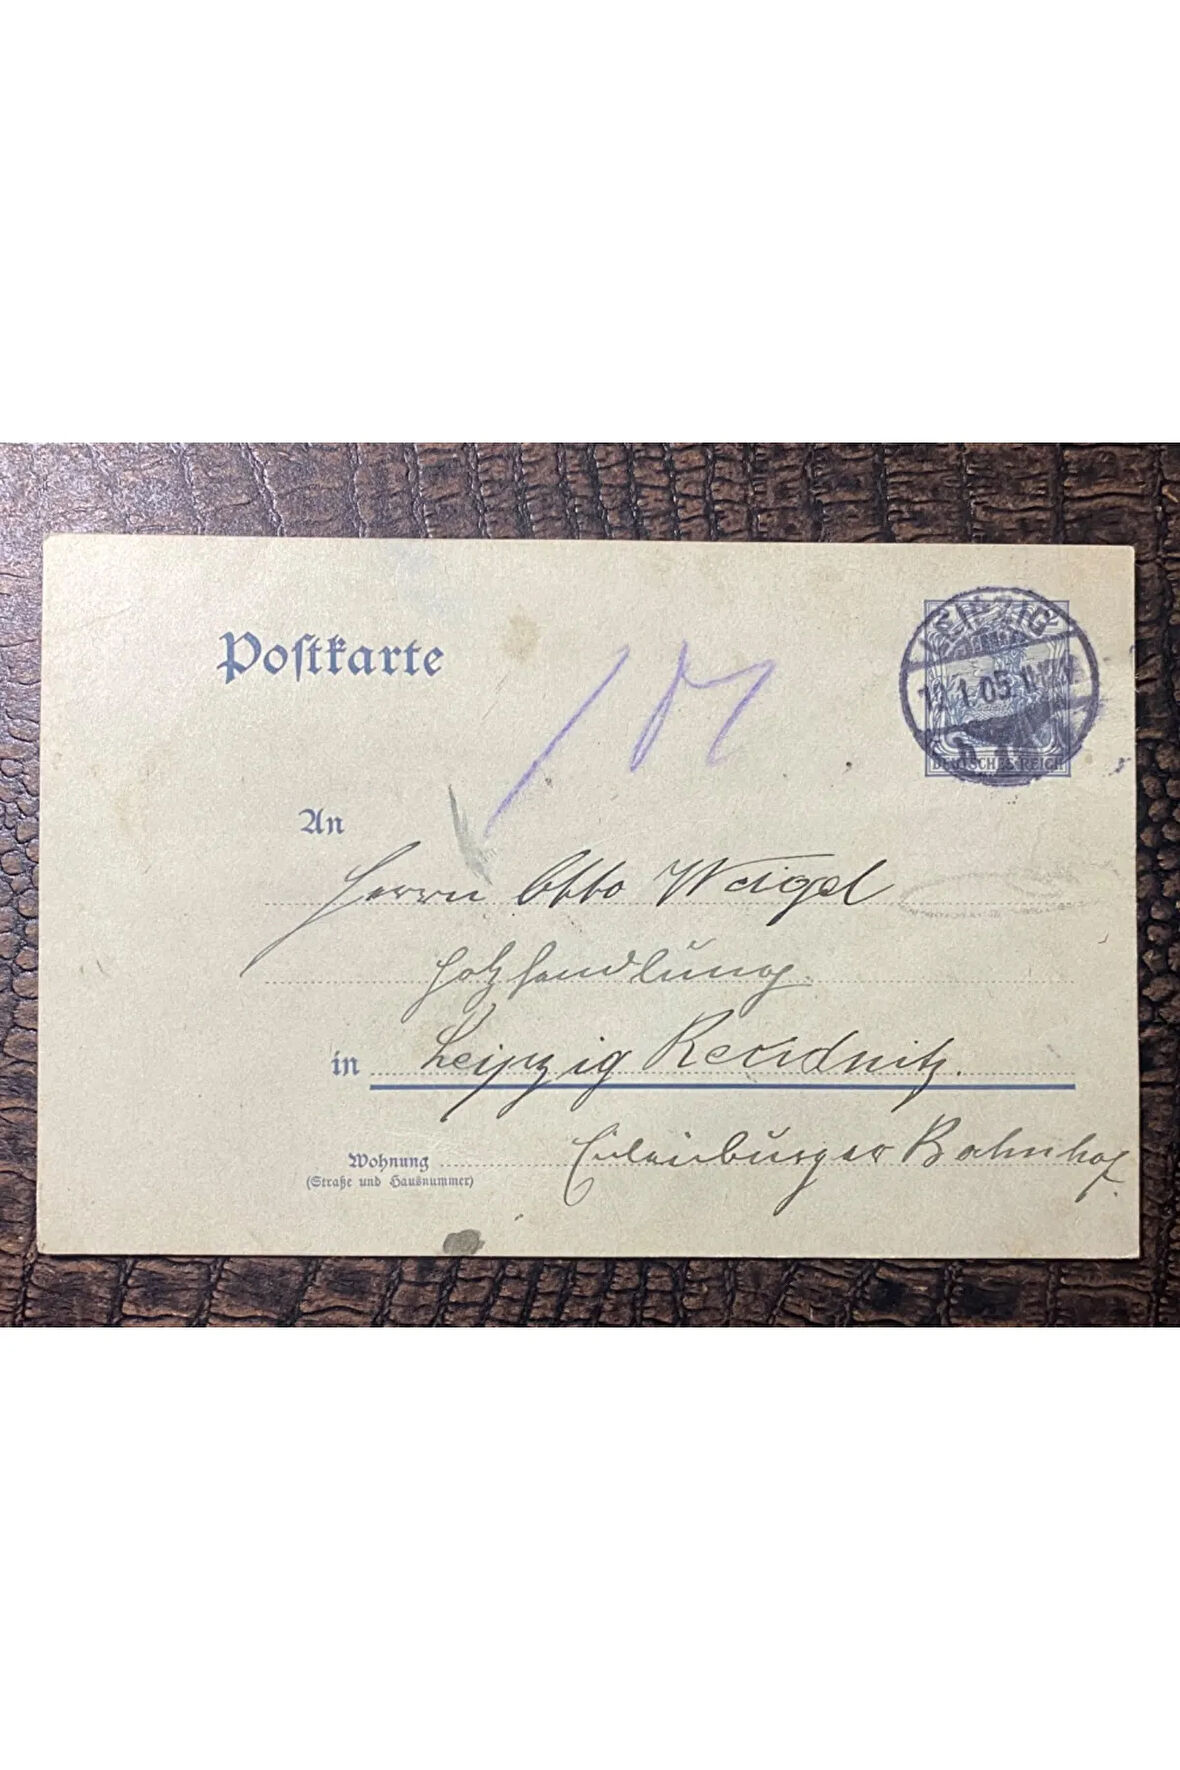 Postkarte
LEIPZIG
12.1.05
DEUTSCHES REICH
An
Herrn Otto Weigel
Holzhandlung.
in Leipzig Reudnitz.
Wohnung Eilenburger Bahnhof.
(Straße und Hausnummer)